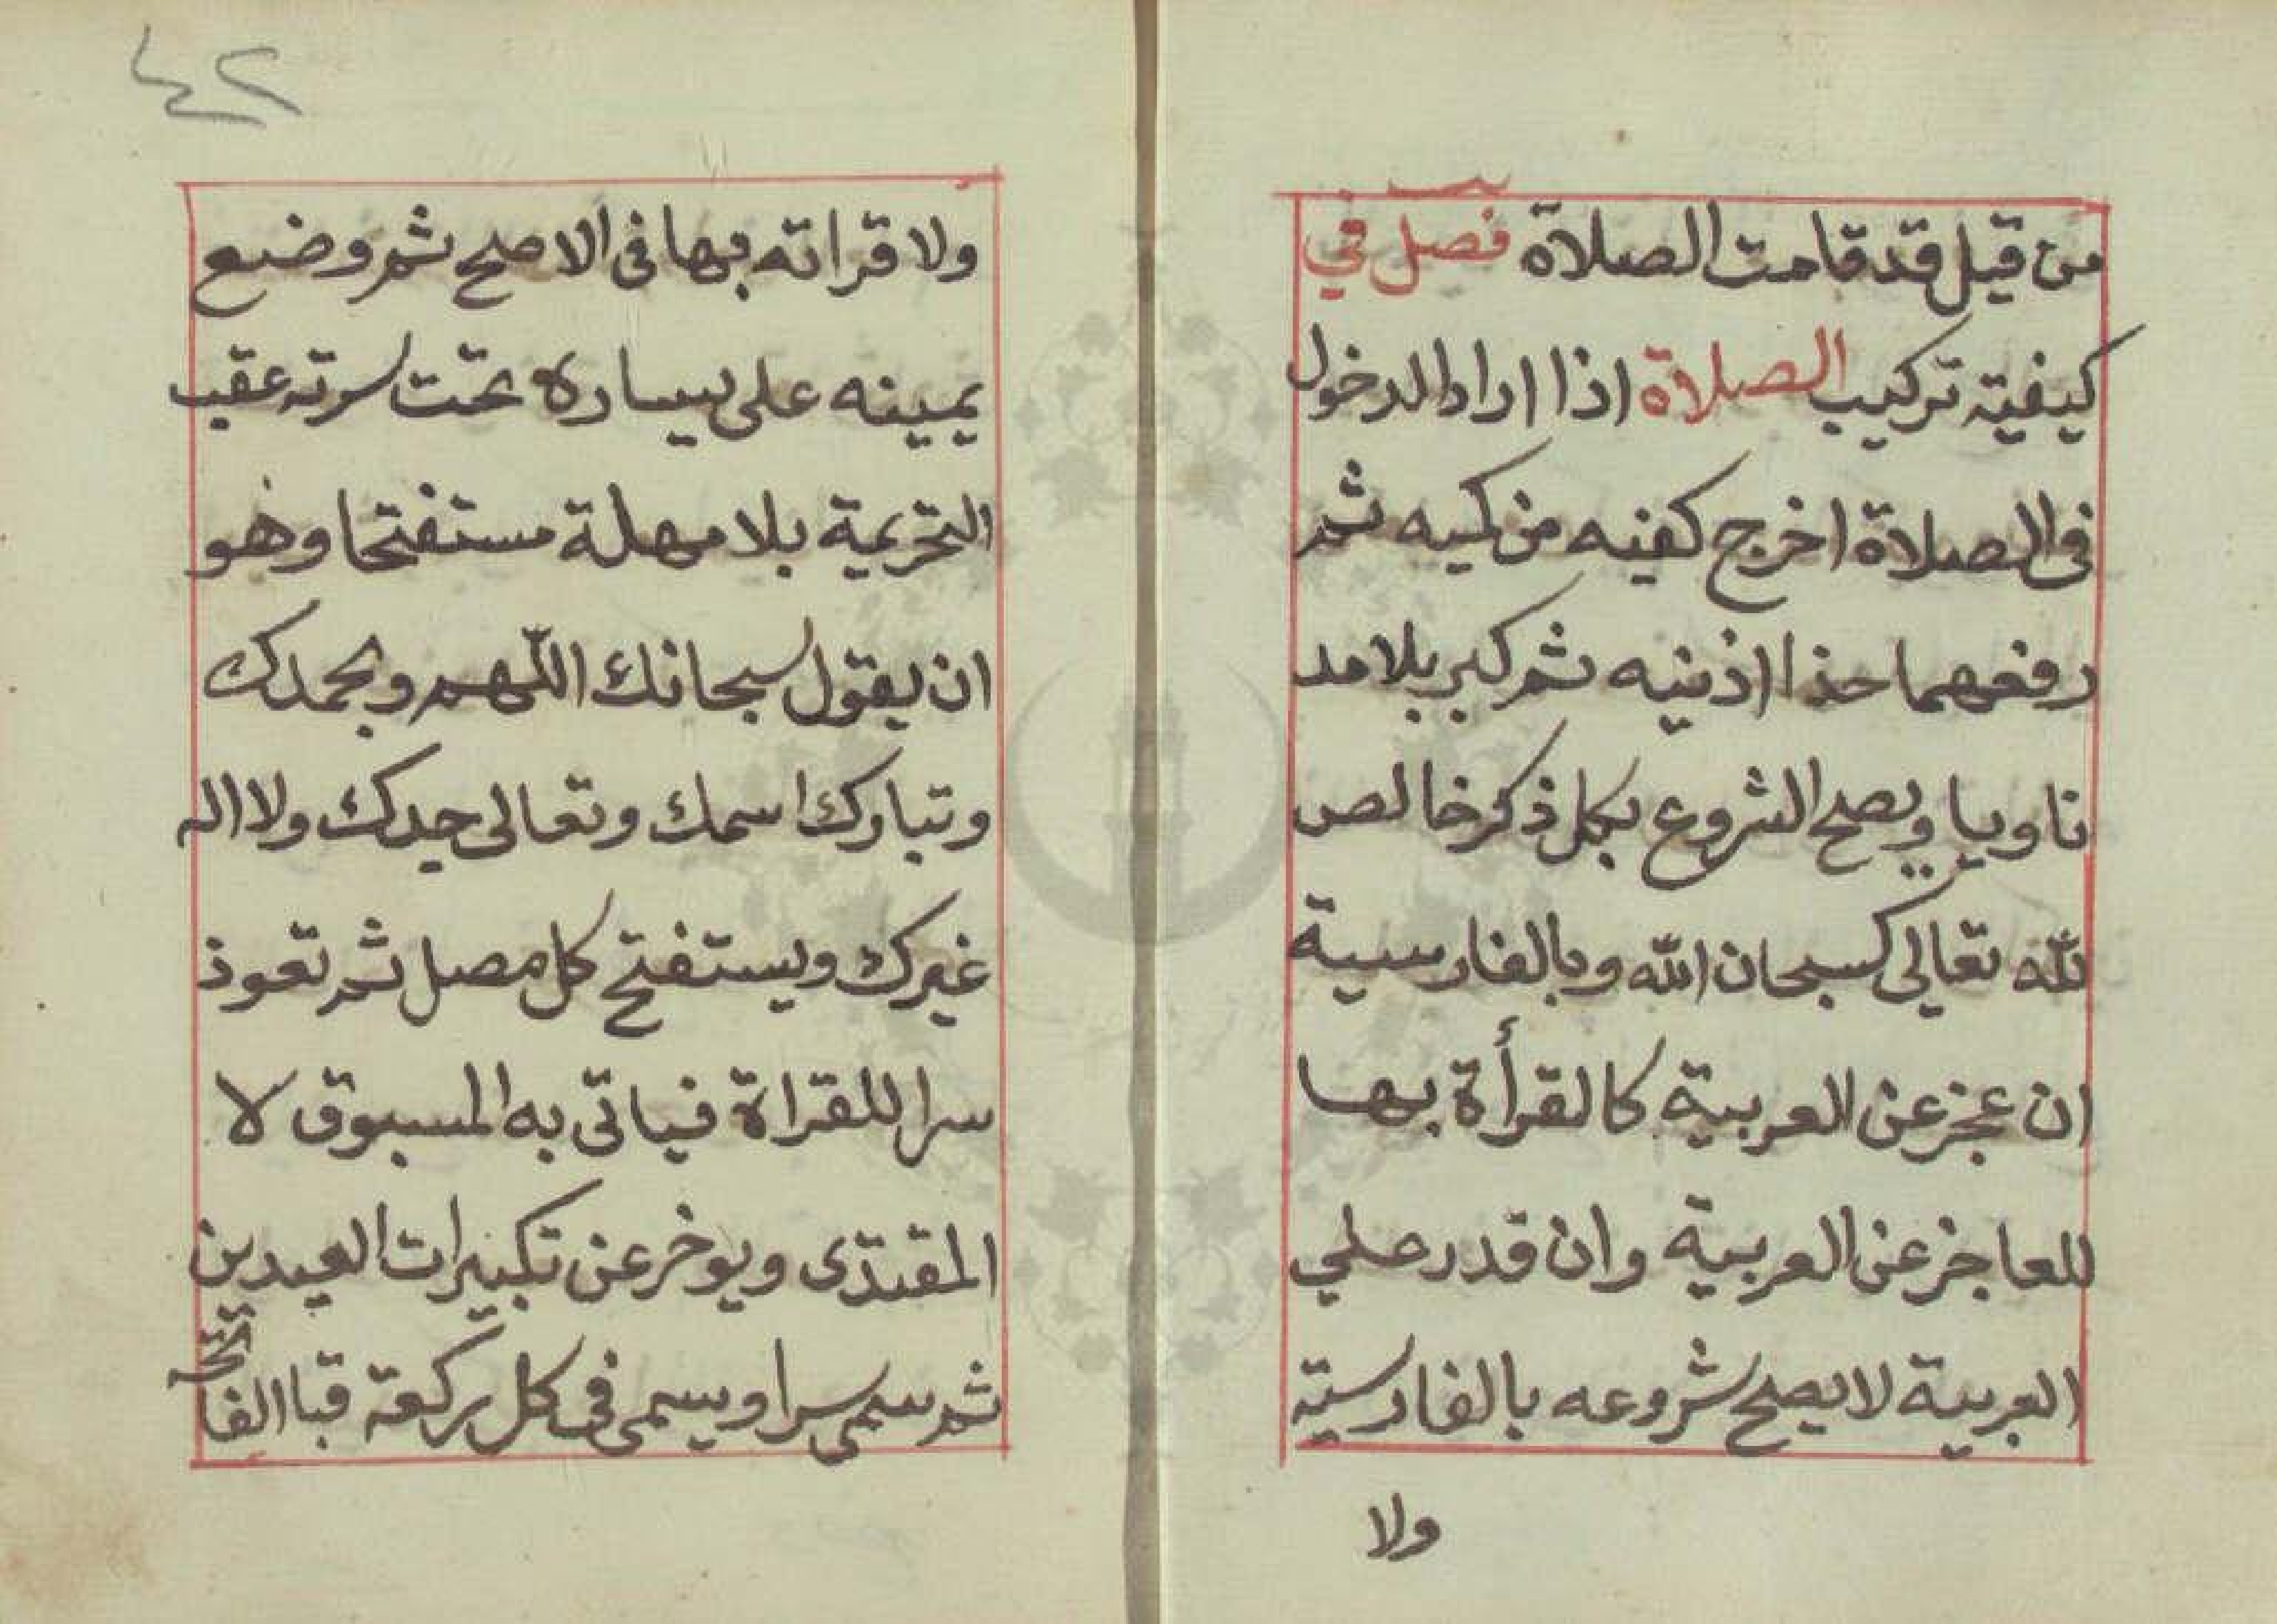 من قيل قد قامت الصلاة فصل في
كيفية تركيب الصلاة اذا اراد الدخول
فى الصلاة اخرج كفيه من كميه ثم
رفعهما حذا اذنيه ثم كبر بلا مد
ناويا ويصح الشروع بكل ذكر خالص
لله تعالى كسبحان الله وبالفارسية
ان عجز عن العربية كالقرأة بها
للعاجز عن العربية وان قدر علي
العربية لا يصح شروعه بالفارسية
ولا
٤٢
ولا قراته بها فى الاصح ثم وضع
يمينه على يساره تحت سرته عقب
التحريمة بلا مهلة مستفتحا وهو
ان يقول سبحانك اللهم وبحمدك
وتبارك اسمك وتعالى جدك ولا اله
غيرك ويستفتح كل مصل ثم تعوذ
سرا للقراة فياتى به المسبوق لا
المقتدى ويوخر عن تكبيرات العيدين
ثم سمى سرا ويسمى فى كل ركعة قبا الفاتحة